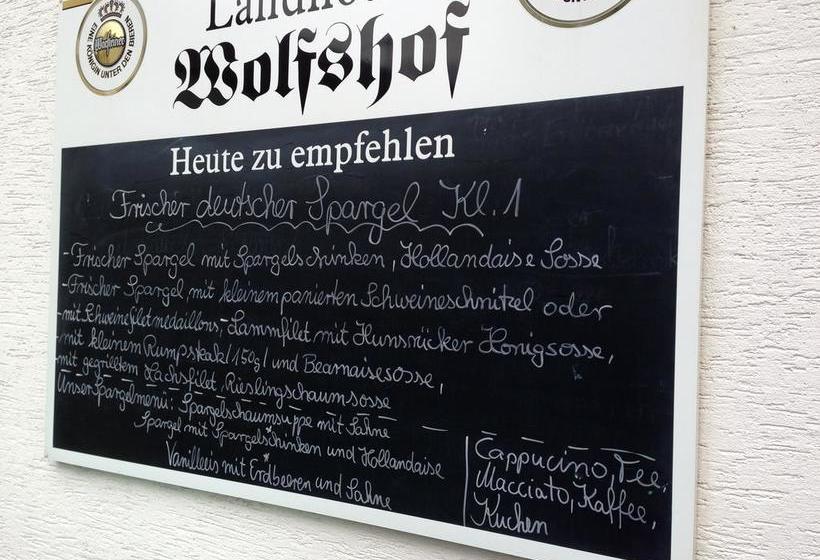 EINE KÖNIGIN UNTER DEN BIEREN
Warsteiner
Wolfshof
Heute zu empfehlen
Frischer deutscher Spargel Kl. 1
- Frischer Spargel mit Spargelschinken, Hollandaise Sosse
- Frischer Spargel mit kleinem panierten Schweineschnitzel oder
- mit Schweinefiletmedaillons, - Lammfilet mit Hunsrücker Honigsosse,
- mit kleinem Rumpsteak (150g) und Bearnaisesosse,
- mit gegrilltem Lachsfilet, Rieslingschaumsosse
Unser Spargelmenü: Spargelschaumsuppe mit Sahne
Spargel mit Spargelschinken und Hollandaise
Vanilleeis mit Erdbeeren und Sahne
Cappuccino, Tee,
Macciato, Kaffee,
Kuchen